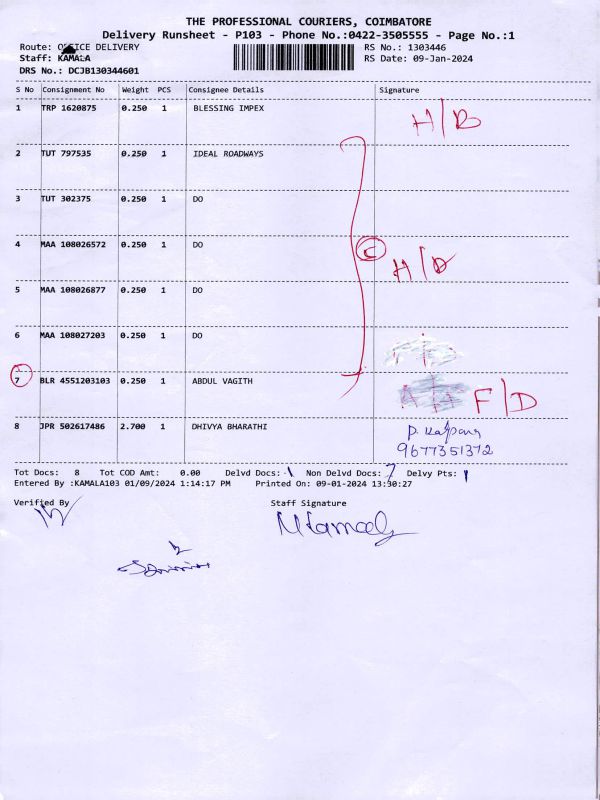 THE PROFESSIONAL COURIERS, COIMBATORE
Delivery Runsheet - P103 - Phone No.:0422-3505555 - Page No.:1
Route: OFFICE DELIVERY RS No.: 1303446
Staff: KAMALA RS Date: 09-Jan-2024
DRS No.: DCJB130344601
S No Consignment No Weight PCS Consignee Details Signature
1 TRP 1620875 0.250 1 BLESSING IMPEX H/B
2 TUT 797535 0.250 1 IDEAL ROADWAYS
3 TUT 302375 0.250 1 DO
4 MAA 108026572 0.250 1 DO
C H/D
5 MAA 108026877 0.250 1 DO
6 MAA 108027203 0.250 1 DO
7 BLR 4551203103 0.250 1 ABDUL VAGITH F/D
8 JPR 502617486 2.700 1 DHIVYA BHARATHI P. Kalpana
9677351372
Tot Docs: 8 Tot COD Amt: 0.00 Delvd Docs: 1 Non Delvd Docs: 7 Delvy Pts: 1
Entered By :KAMALA103 01/09/2024 1:14:17 PM Printed On: 09-01-2024 13:30:27
Verified By Staff Signature